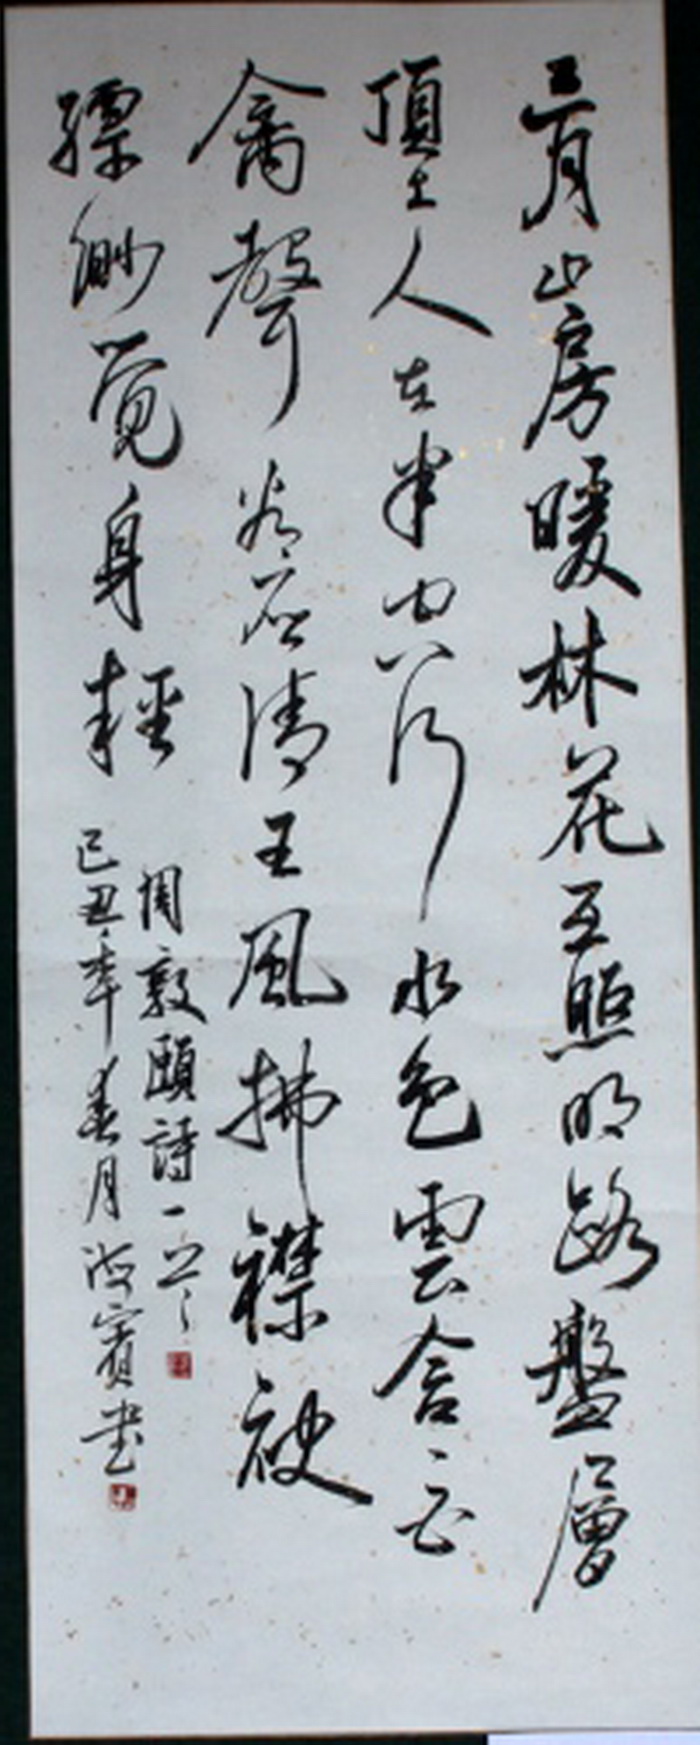 三月山房暖林花互照明路盤層
頂上人在半空行水色雲含白
禽聲谷應清天風拂襟袂
縹緲覺身輕
周敦頤詩一首
己丑年春月海賓書